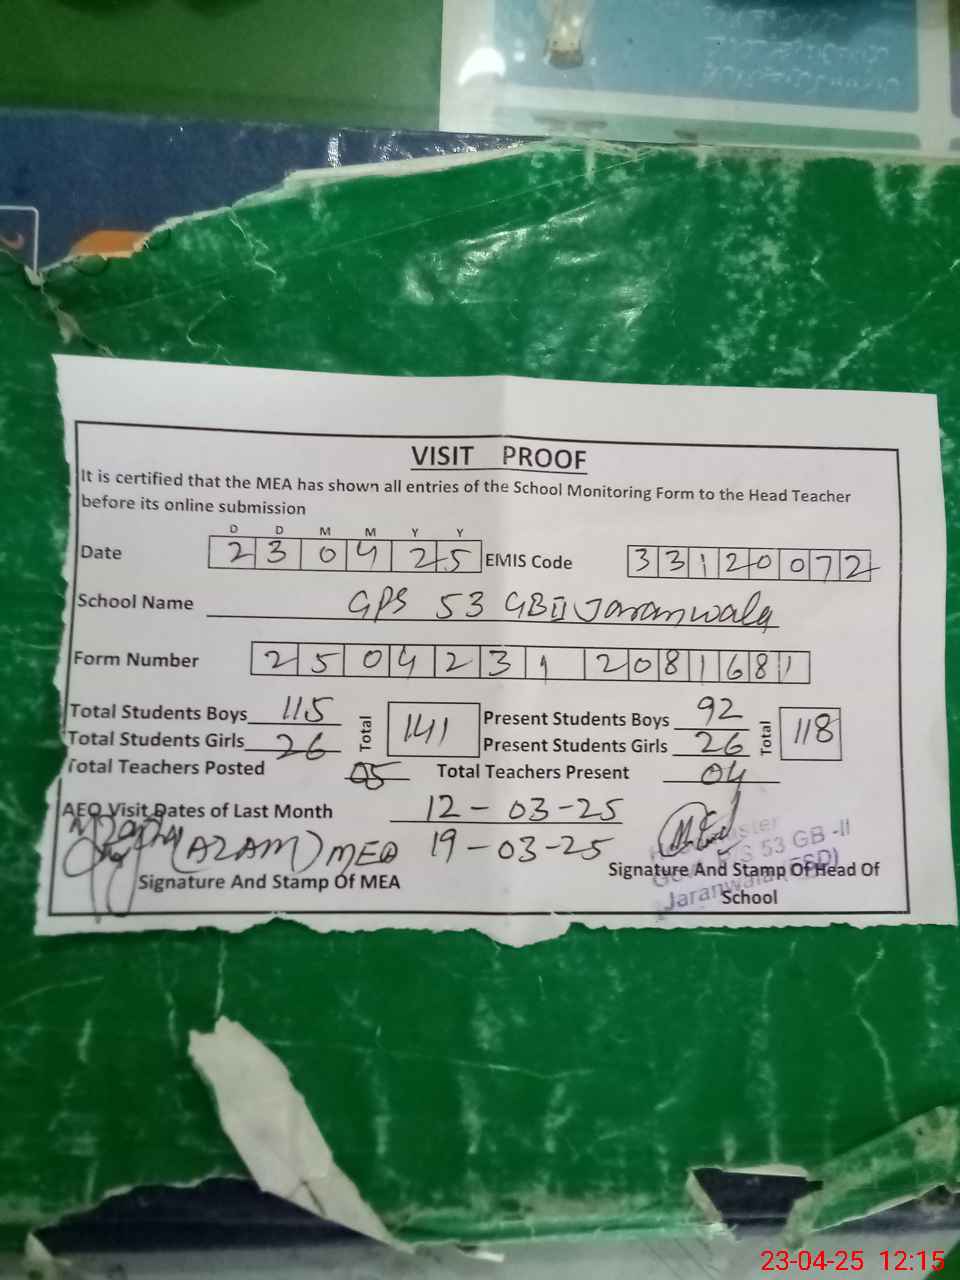 VISIT PROOF
It is certified that the MEA has shown all entries of the School Monitoring Form to the Head Teacher
before its online submission
D D M M Y Y
Date 2 3 0 4 2 5 EMIS Code 3 3 1 2 0 0 7 2
School Name GPS 53 GB II Jaranwala
Form Number 2 5 0 4 2 3 1 2 0 8 1 6 8 1
Total Students Boys 115 Total 141 Present Students Boys 92 Total 118
Total Students Girls 26 Present Students Girls 26
Total Teachers Posted 05 Total Teachers Present 04
AEO Visit Dates of Last Month 12-03-25
(AZAM) MEA 19-03-25
Signature And Stamp Of MEA
Signature And Stamp Of Head Of
School
53 GB -II
Jaranwala (FSD)
23-04-25 12:15